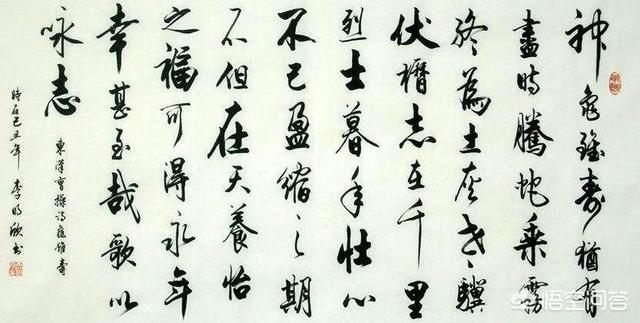 神龜雖壽猶有
盡時騰蛇乘霧
終為土灰老驥
伏櫪志在千里
烈士暮年壯心
不已盈縮之期
不但在天養怡
之福可得永年
幸甚至哉歌以
詠志
東漢曹操詩龜雖壽
時在己丑年 李明欣书
悟空问答